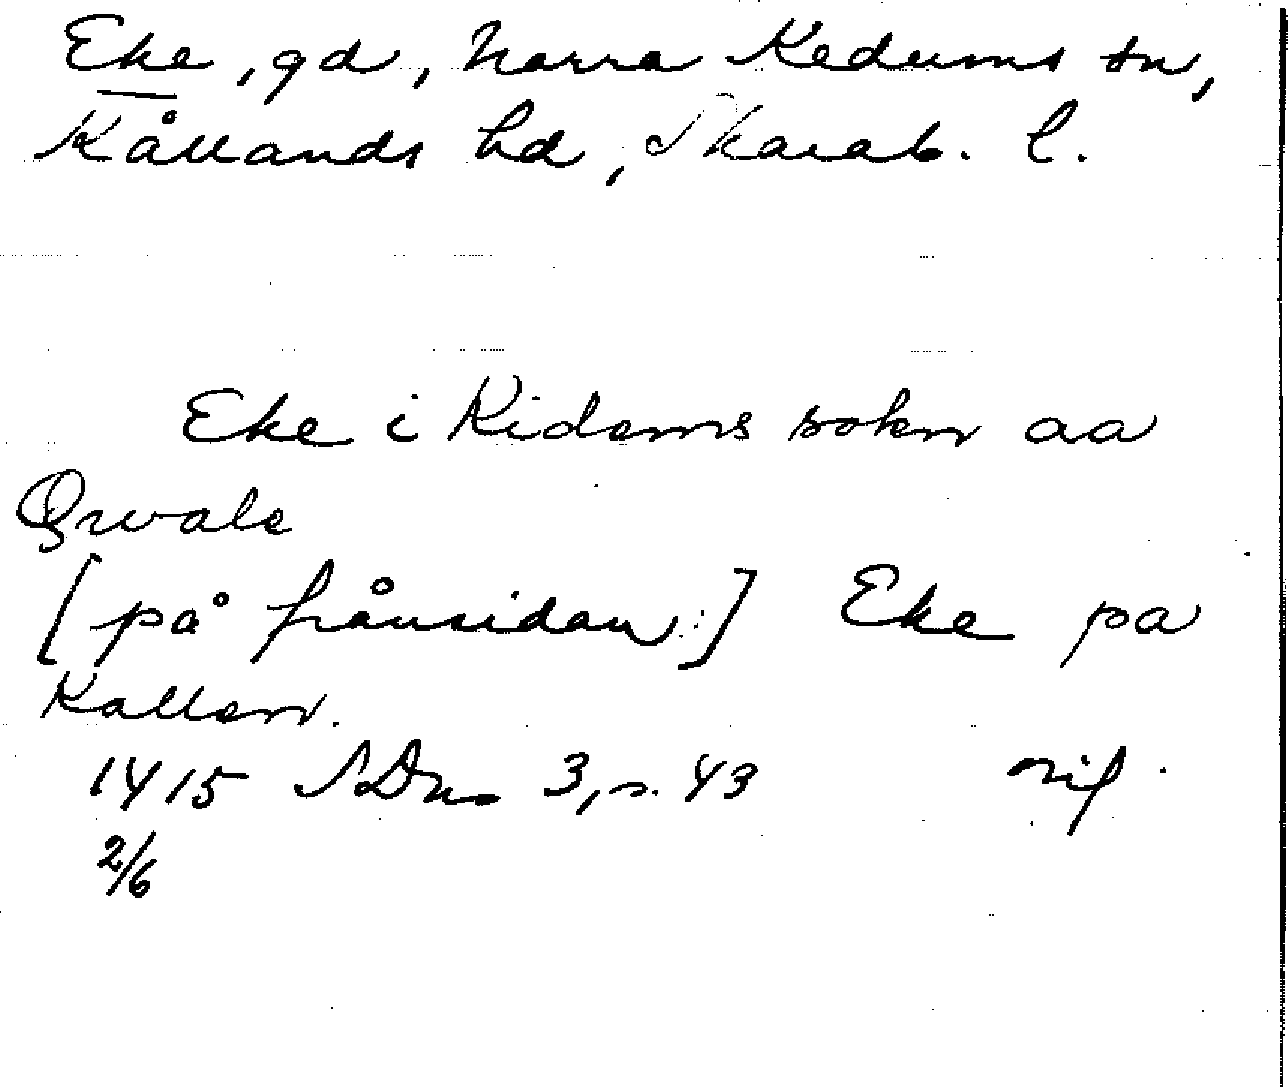 Eke, gd, Norra Kedums sn,
Kållands hd, Skarab. l.
Eke i Kidems sokn aa
Qwale
[på frånsidan:] Eke pa
Kallem.
1415 SDns 3, s. 43
2/6